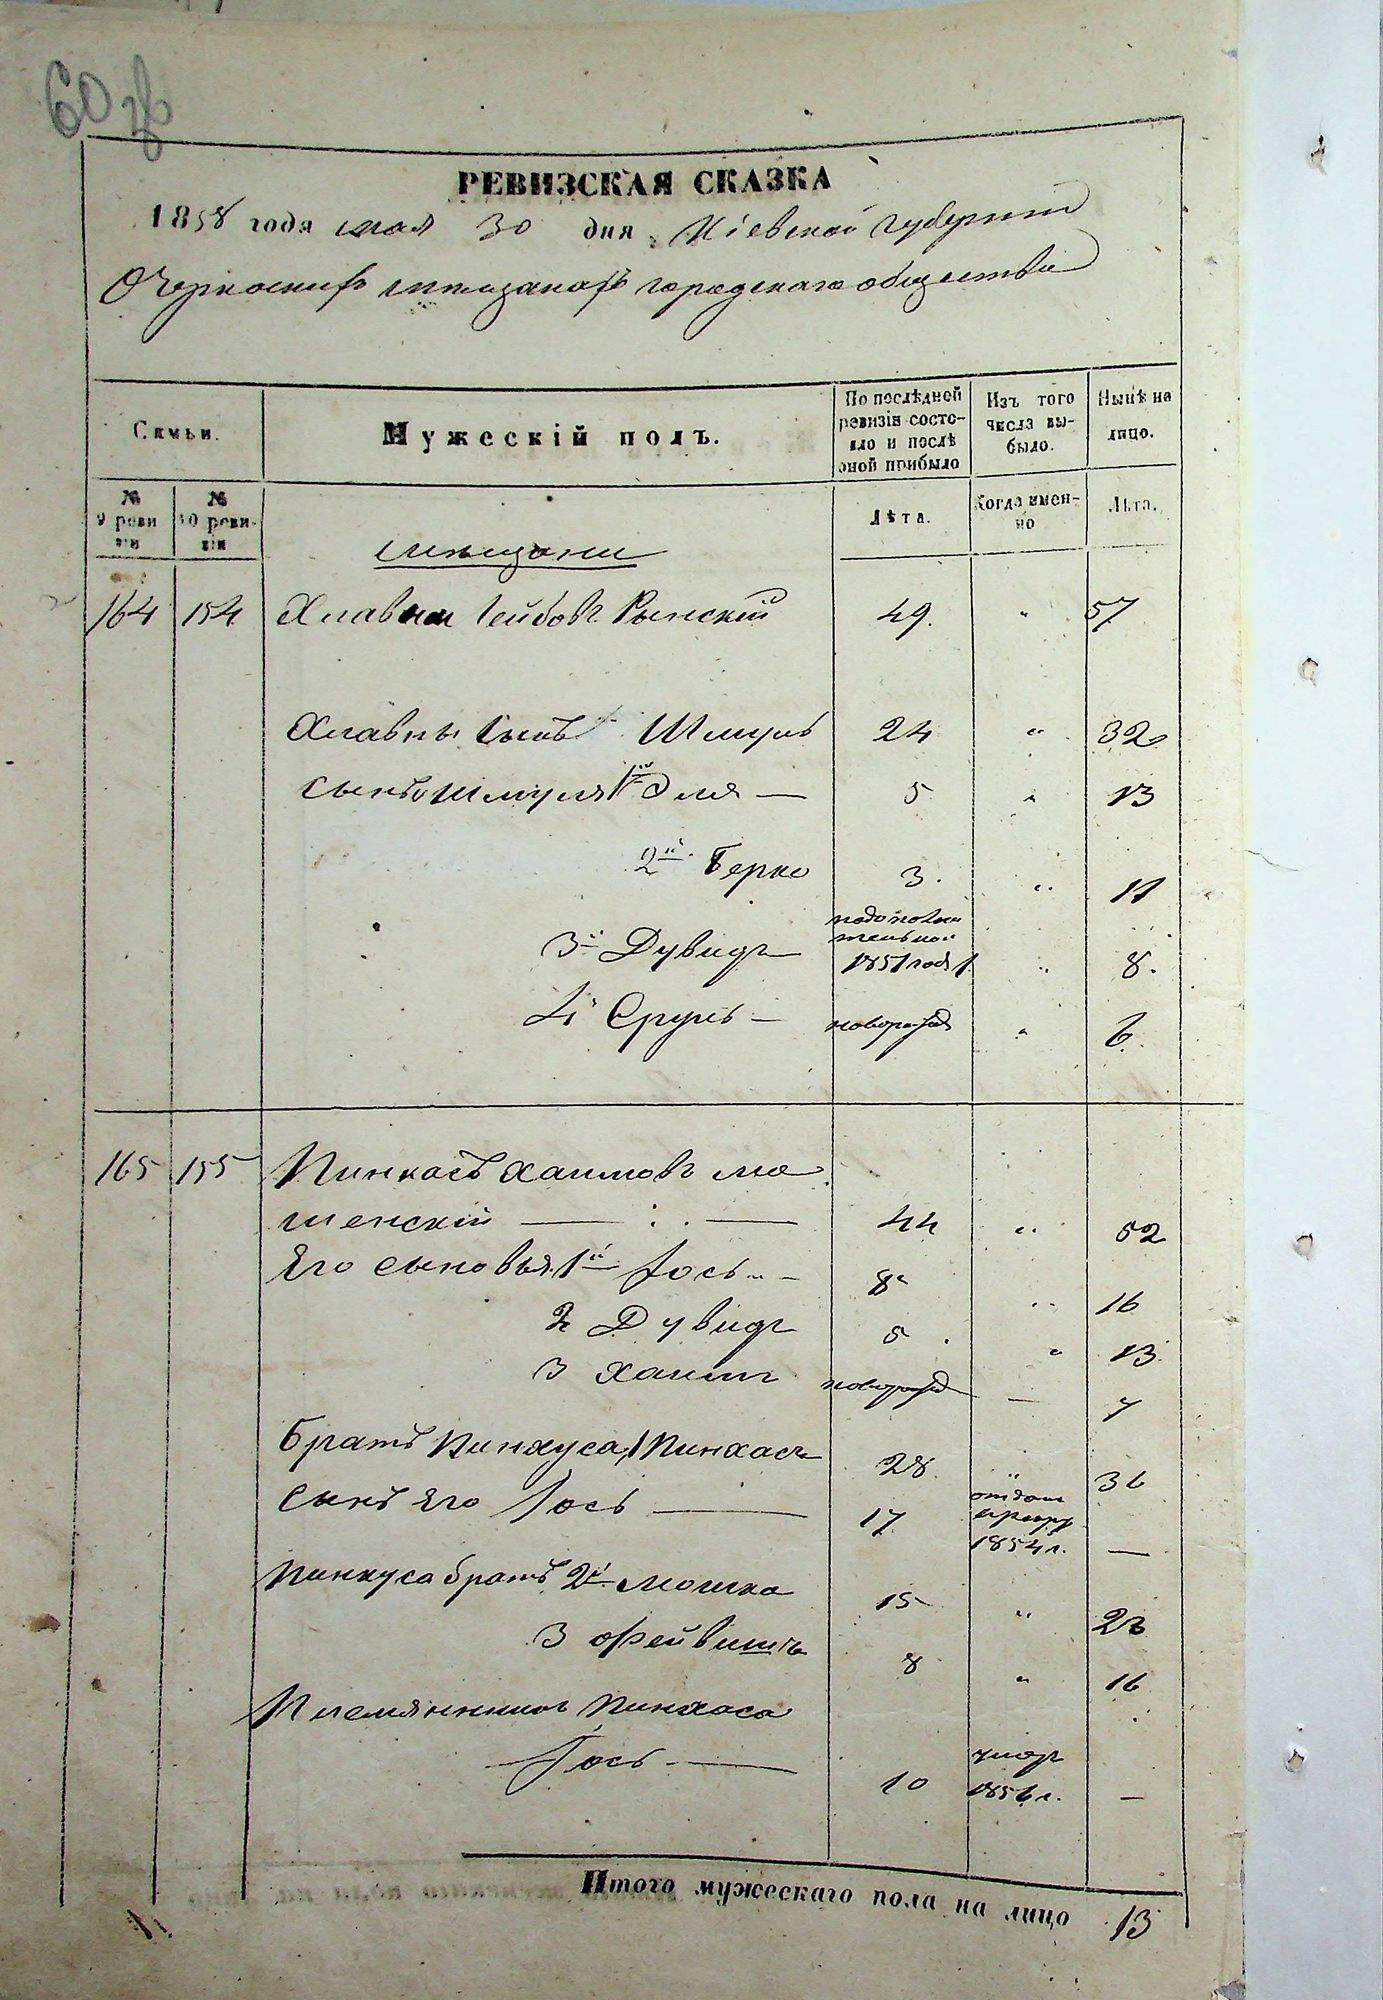 60 зв
РЕВИЗСКАЯ СКАЗКА
1858 года мая 30 дня Кіевской губерніи
О Черкаскихъ мещанахъ городскаго общества
Семьи.
Мужескій полъ.
По послѣдней ревизіи состояло и послѣ оной прибыло
Изъ того числа выбыло.
Нынѣ на лицо.
№ 9 ревизіи
№ 10 ревизіи
Лѣта.
Когда именно
Лѣта.
мещани
164 154 Хлавна Лейбовъ Рынскій 49. " 57
Хлавны сынъ Шмуль 24 " 32
Сыны Шмуля 1й Эля — 5 " 13
2й Берко 3. " 11
3й Дувидъ — 1851 года 1. " 8.
4й Сруль — новорожд " 6
165 155 Пинкасъ Хаимовъ мо
шенскій — 44 " 52
Его сыновья 1й Іось — 8 " 16
2 Дувидъ 5 " 13
3 Хаимъ новорожд — 7
Братъ Пинхуса 1 Пинхасъ 28 " 36
Сынъ Его Іось — 17 отдан в рекру 1854 г. —
Пинкуса братъ 2й Мошко 15 " 23
3 Фейвишъ 8 " 16
Племянникъ Пинхаса
Іось — 10 умеръ 1856 г. —
Итого мужескаго пола на лицо 13